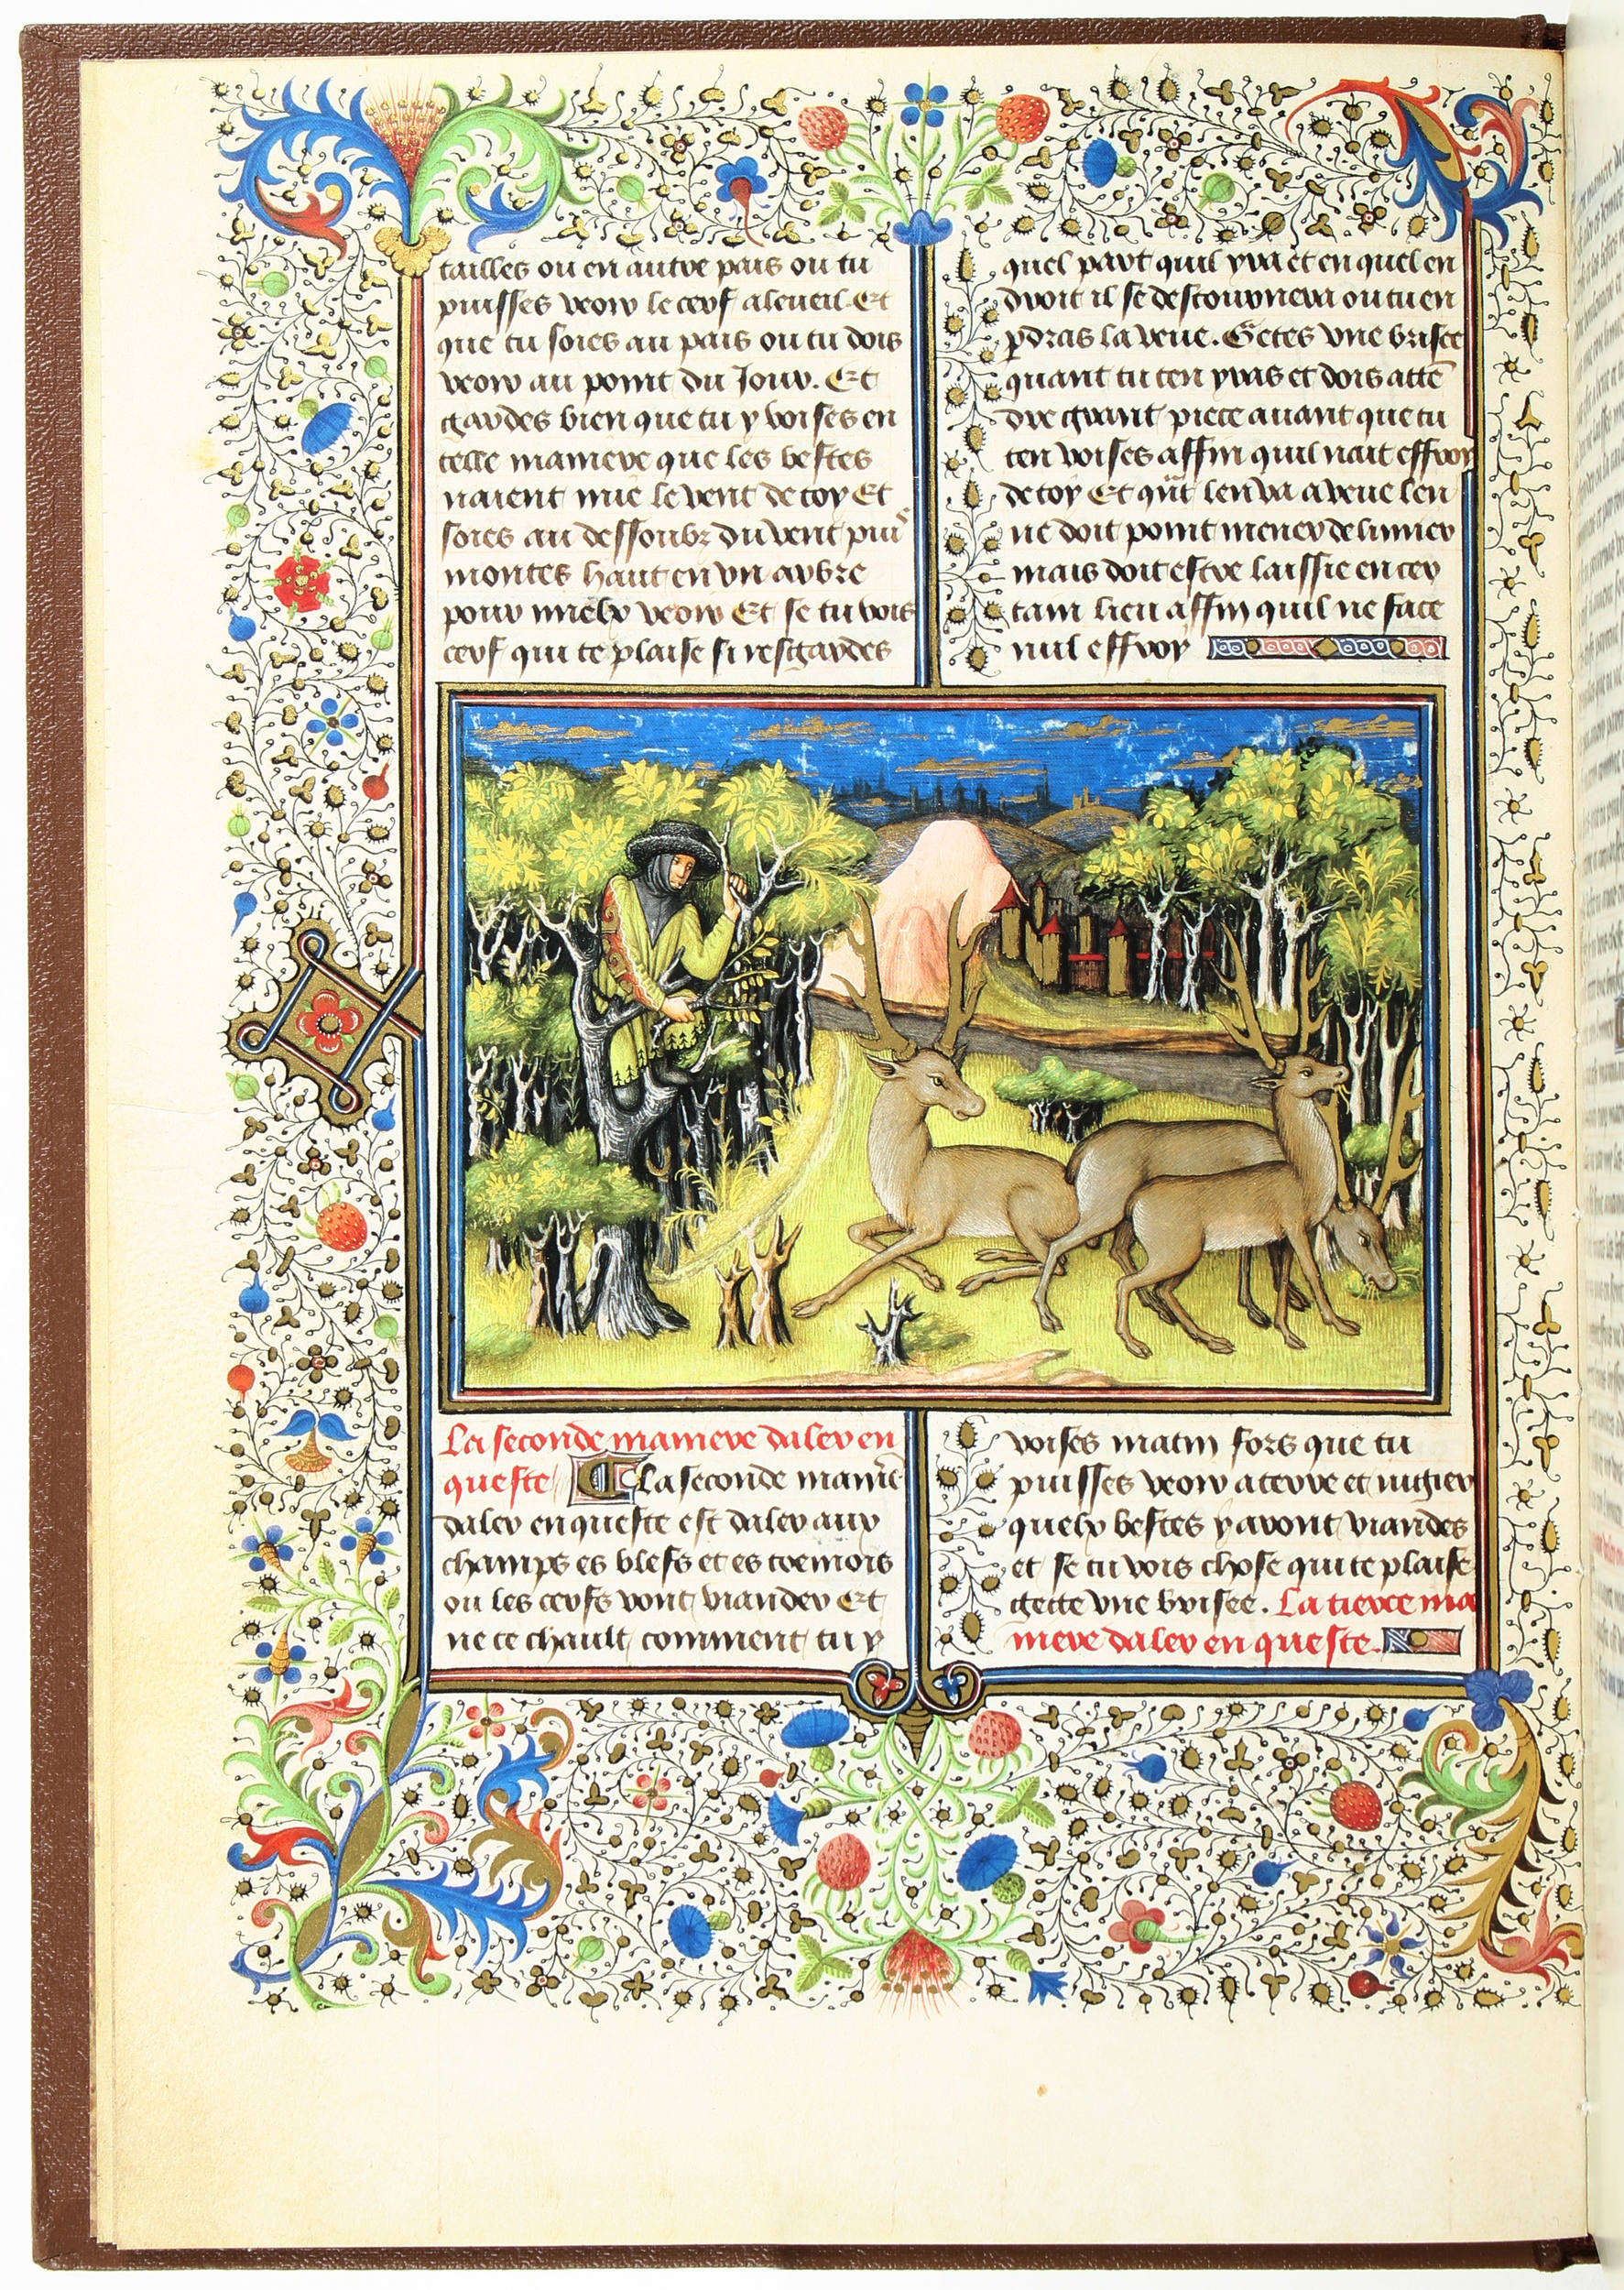 tailles ou en autre pais ou tu
puisses veoir le cerf a leueil. Et
que tu soies au pais ou tu dois
veoir au point du Jour. Et
gardes bien que tu y voises en
telle maniere que les bestes
naient mie le vent de toy Et
soies au dessoubz du vent puis
montes hault en vn arbre
pour mielx veoir Et se tu vois
cerf qui te plaise si resgardes
quel part quil yra et en quel en
droit il se destournera ou tu en
pdras la veue. Gettes vne brisee
quant tu ten yras et dois atte
dre grant piece auant que tu
ten voises affin quil nait effroy
de toy Et qnt len va a veue len
ne doit point mener de limier
mais doit estre laissie en cer
tain lieu affin quil ne face
nul effroy
La seconde maniere daler en
queste La seconde manie
daler en queste est daler aux
champs es blefs et es tremois
ou les cerfs vont viander Et
ne te chault comment tu y
voises matin fors que tu
puisses veoir a terre et iugier
quelx bestes y auront viandes
et se tu vois chose qui te plaise
gette vne brisee. La tierce ma
niere daler en queste.